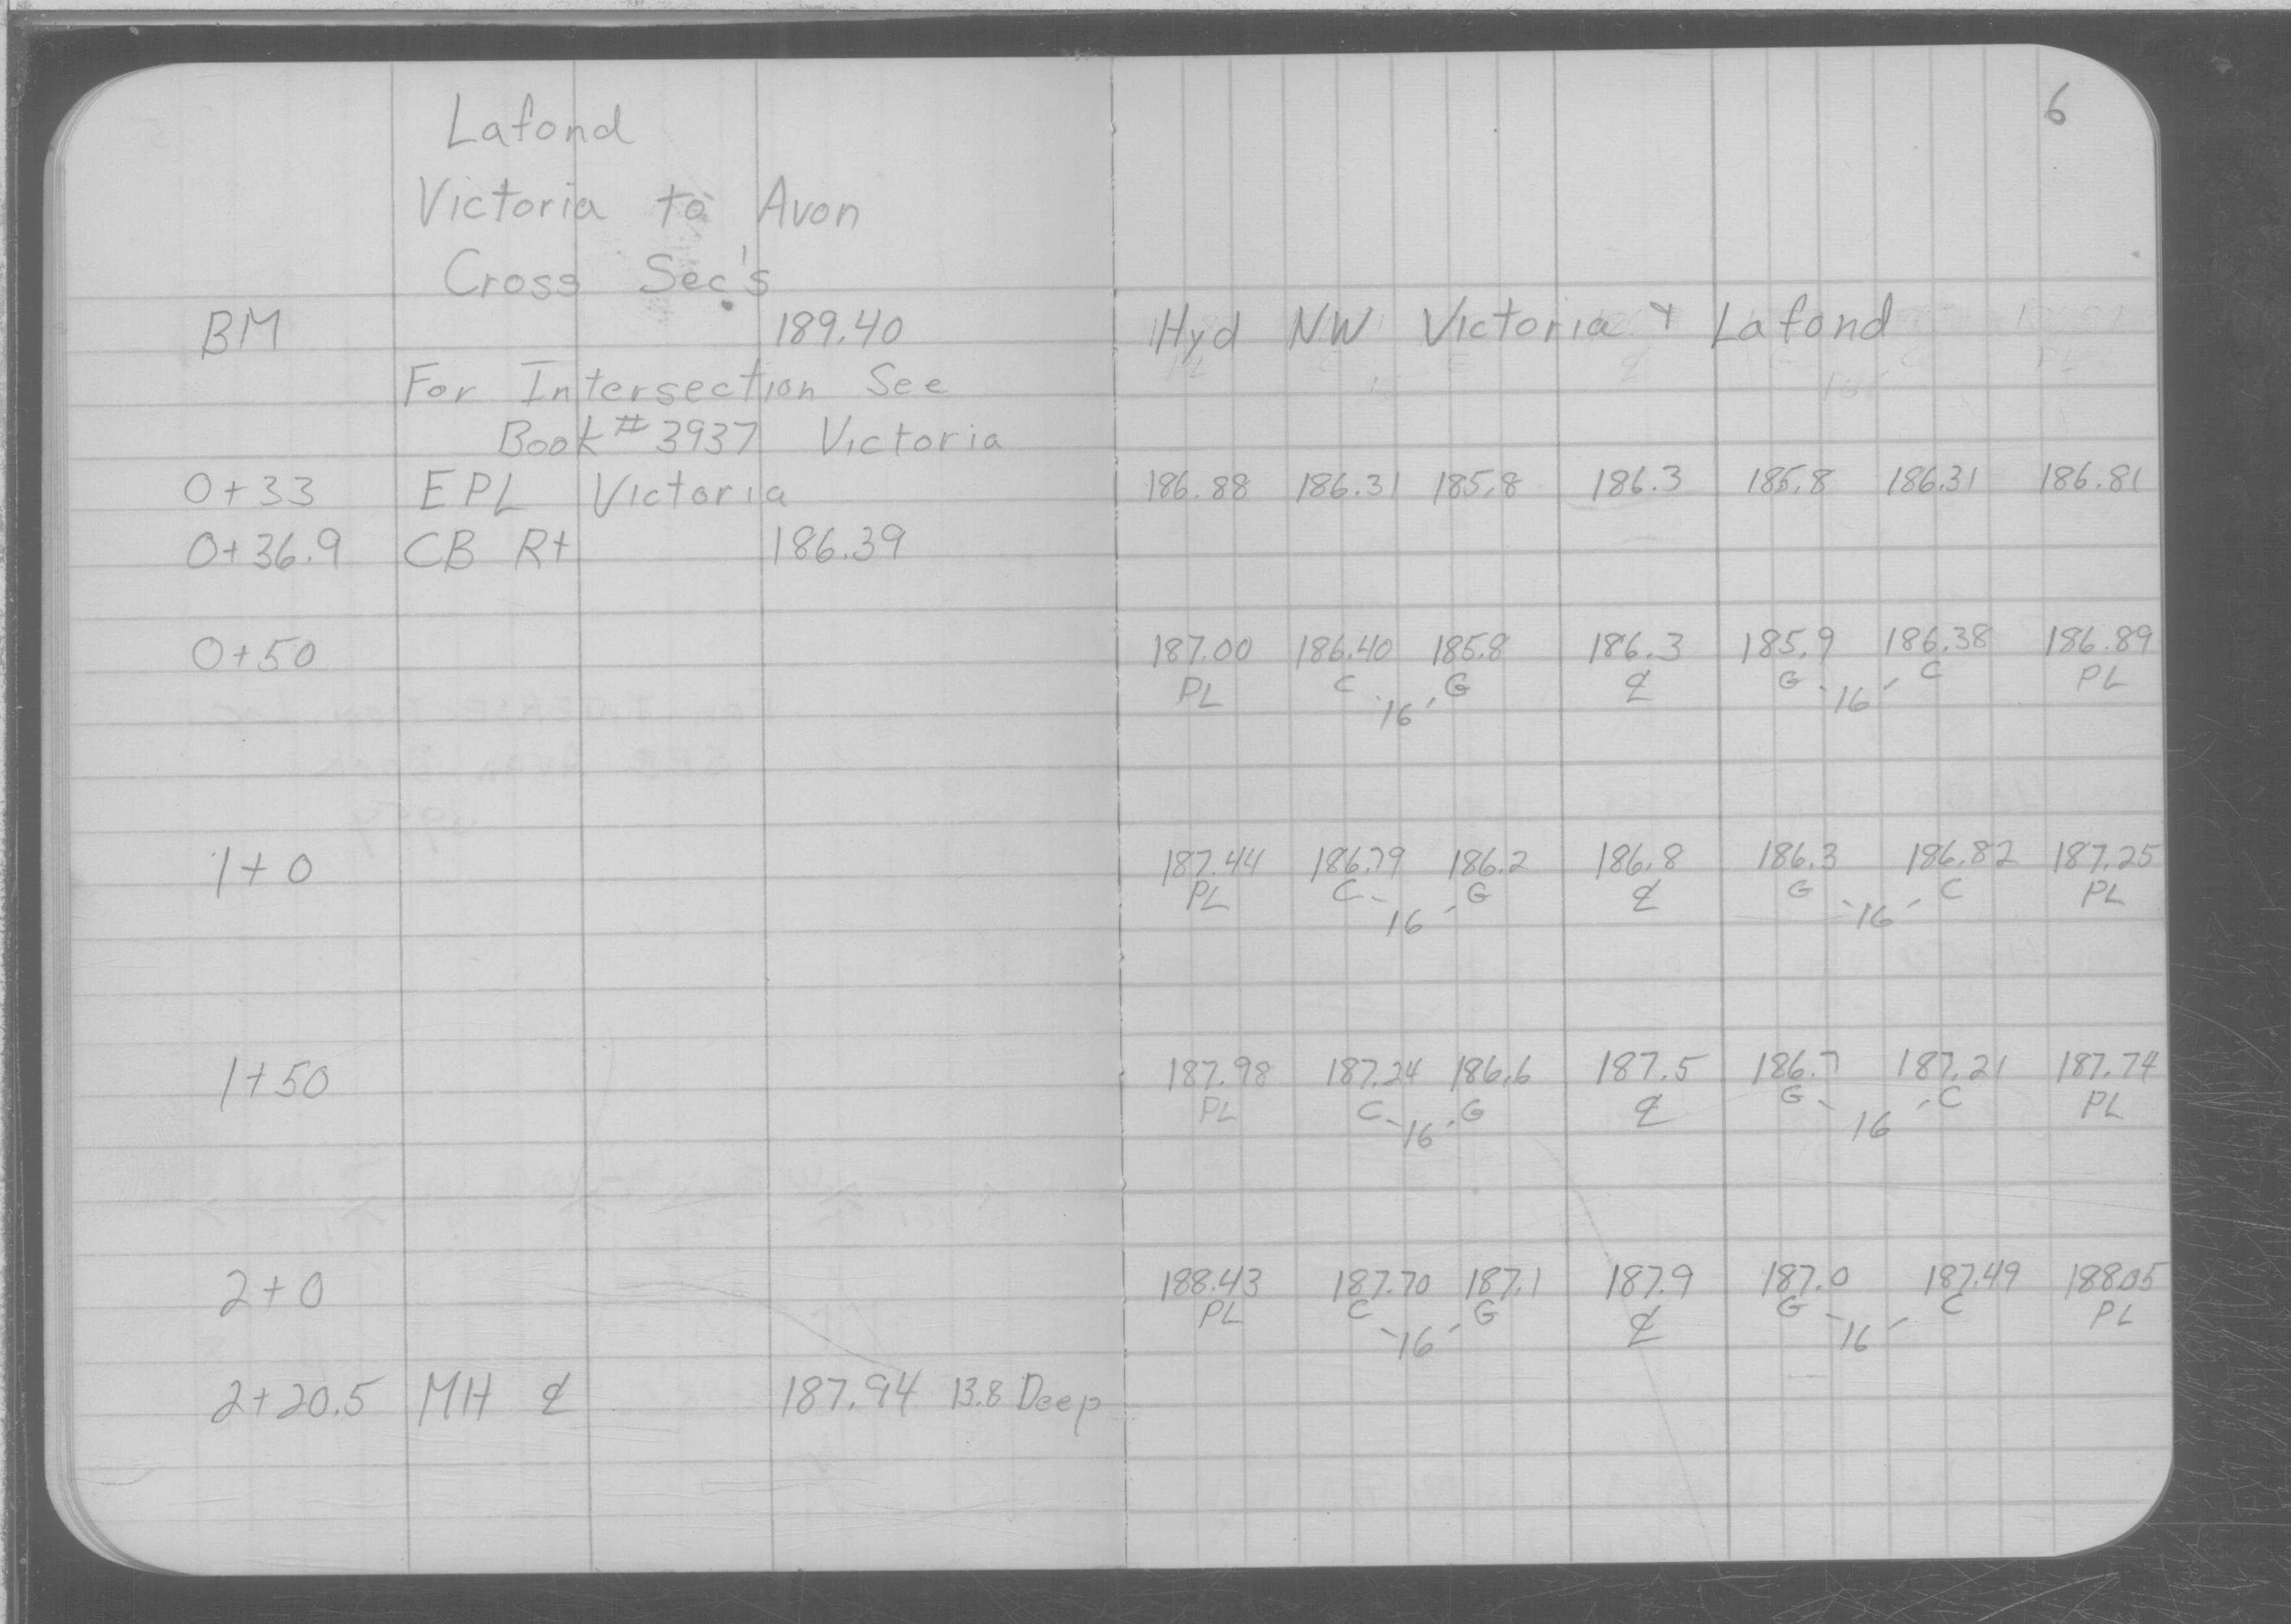 6
Lafond
Victoria to Avon
Cross Sec's
BM 189.40 Hyd NW Victoria & Lafond
For Intersection See
Book # 3937 Victoria
0+33 EPL Victoria 186.88 186.31 185.8 186.3 185.8 186.31 186.81
0+36.9 CB Rt 186.39
0+50 187.00 186.40 185.8 186.3 185.9 186.38 186.89
PL C G ℄ G C PL
16 16
1+0 187.44 186.79 186.2 186.8 186.3 186.82 187.25
PL C G ℄ G C PL
16 16
1+50 187.98 187.24 186.6 187.5 186.7 187.21 187.74
PL C G ℄ G C PL
16 16
2+0 188.43 187.70 187.1 187.9 187.0 187.49 188.05
PL C G ℄ G C PL
16 16
2+20.5 MH ℄ 187.94 13.8 Deep